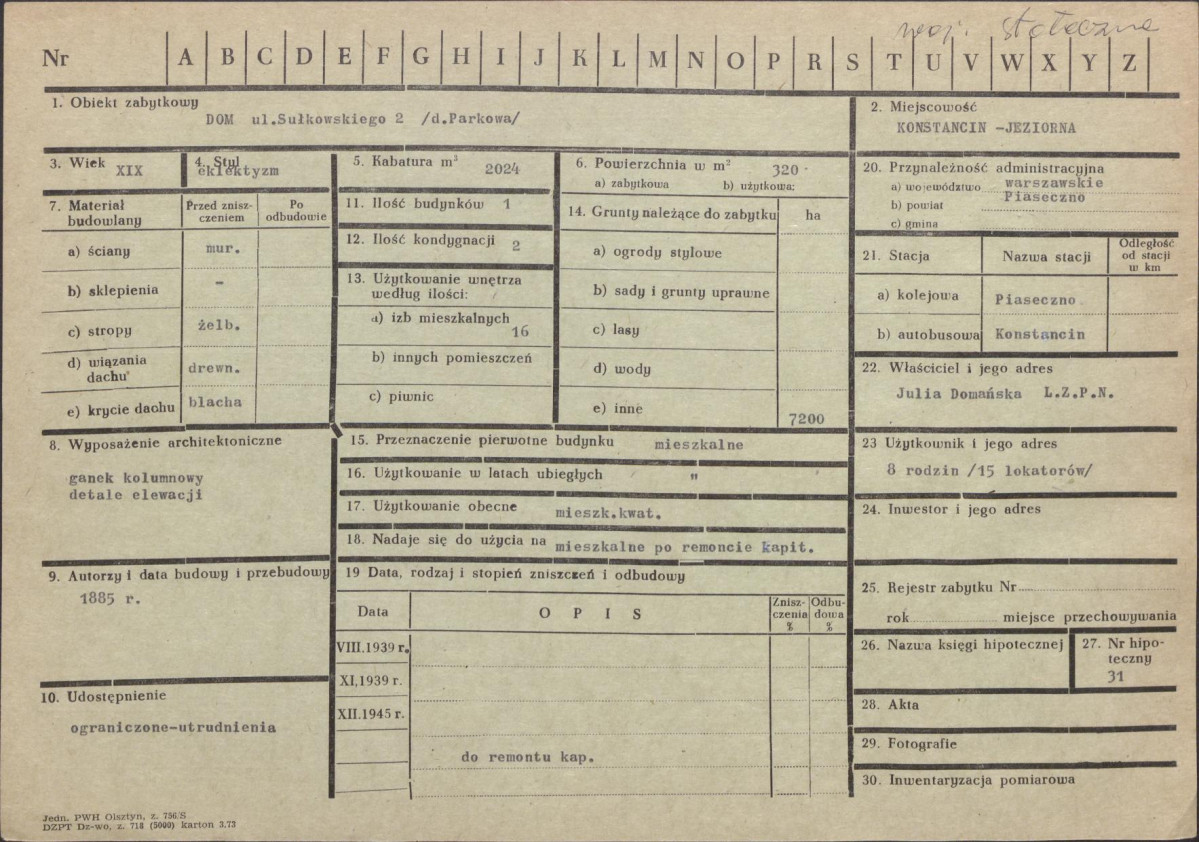 woj. stołeczne
Nr A B C D E F G H I J K L M N O P R S T U V W X Y Z
1. Obiekt zabytkowy
DOM ul.Sułkowskiego 2 /d.Parkowa/
2. Miejscowość
KONSTANCIN -JEZIORNA
3. Wiek XIX
4. Styl
eklektyzm
5. Kabatura m³ 2024
6. Powierzchnia w m² 320
a) zabytkowa b) użytkowa:
7. Materiał budowlany
Przed znisz-
czeniem
Po
odbudowie
a) ściany mur.
b) sklepienia -
c) stropy żelb.
d) wiązania
dachu drewn.
e) krycie dachu blacha
8. Wyposażenie architektoniczne
ganek kolumnowy
detale elewacji
9. Autorzy i data budowy i przebudowy
1885 r.
10. Udostępnienie
ograniczone-utrudnienia
11. Ilość budynków 1
12. Ilość kondygnacji 2
13. Użytkowanie wnętrza
według ilości:
a) izb mieszkalnych
16
b) innych pomieszczeń
c) piwnic
14. Grunty należące do zabytku ha
a) ogrody stylowe
b) sady i grunty uprawne
c) lasy
d) wody
e) inne
7200
15. Przeznaczenie pierwotne budynku mieszkalne
16. Użytkowanie w latach ubiegłych "
17. Użytkowanie obecne mieszk.kwat.
18. Nadaje się do użycia na mieszkalne po remoncie kapit.
19 Data, rodzaj i stopień zniszczeń i odbudowy
Data
O P I S
Znisz-
czenia
%
Odbu-
dowa
%
VIII.1939 r.
XI,1939 r.
XII.1945 r.
do remontu kap.
20. Przynależność administracyjna
a) województwo warszawskie
b) powiat Piaseczno
c) gmina
21. Stacja
Nazwa stacji
Odległość
od stacji
w km
a) kolejowa Piaseczno
b) autobusowa Konstancin
22. Właściciel i jego adres
Julia Domańska L.Z.P.N.
23 Użytkownik i jego adres
8 rodzin /15 lokatorów/
24. Inwestor i jego adres
25. Rejestr zabytku Nr
rok miejsce przechowywania
26. Nazwa księgi hipotecznej
27. Nr hipo-
teczny
31
28. Akta
29. Fotografie
30. Inwentaryzacja pomiarowa
Jedn. PWH Olsztyn, z. 756/S
DZPT Dz-wo, z. 718 (5000) karton 3.73